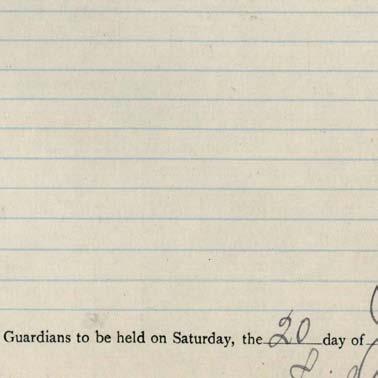 Guardians to be held on Saturday, the 20 day of